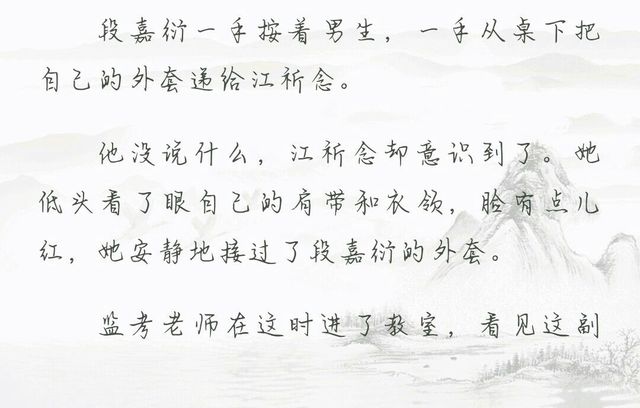 段嘉衍一手按着男生，一手从桌下把
自己的外套递给江祈念。
他没说什么，江祈念却意识到了。她
低头看了眼自己的肩带和衣领，脸有点儿
红，她安静地接过了段嘉衍的外套。
监考老师在这时进了教室，看见这副